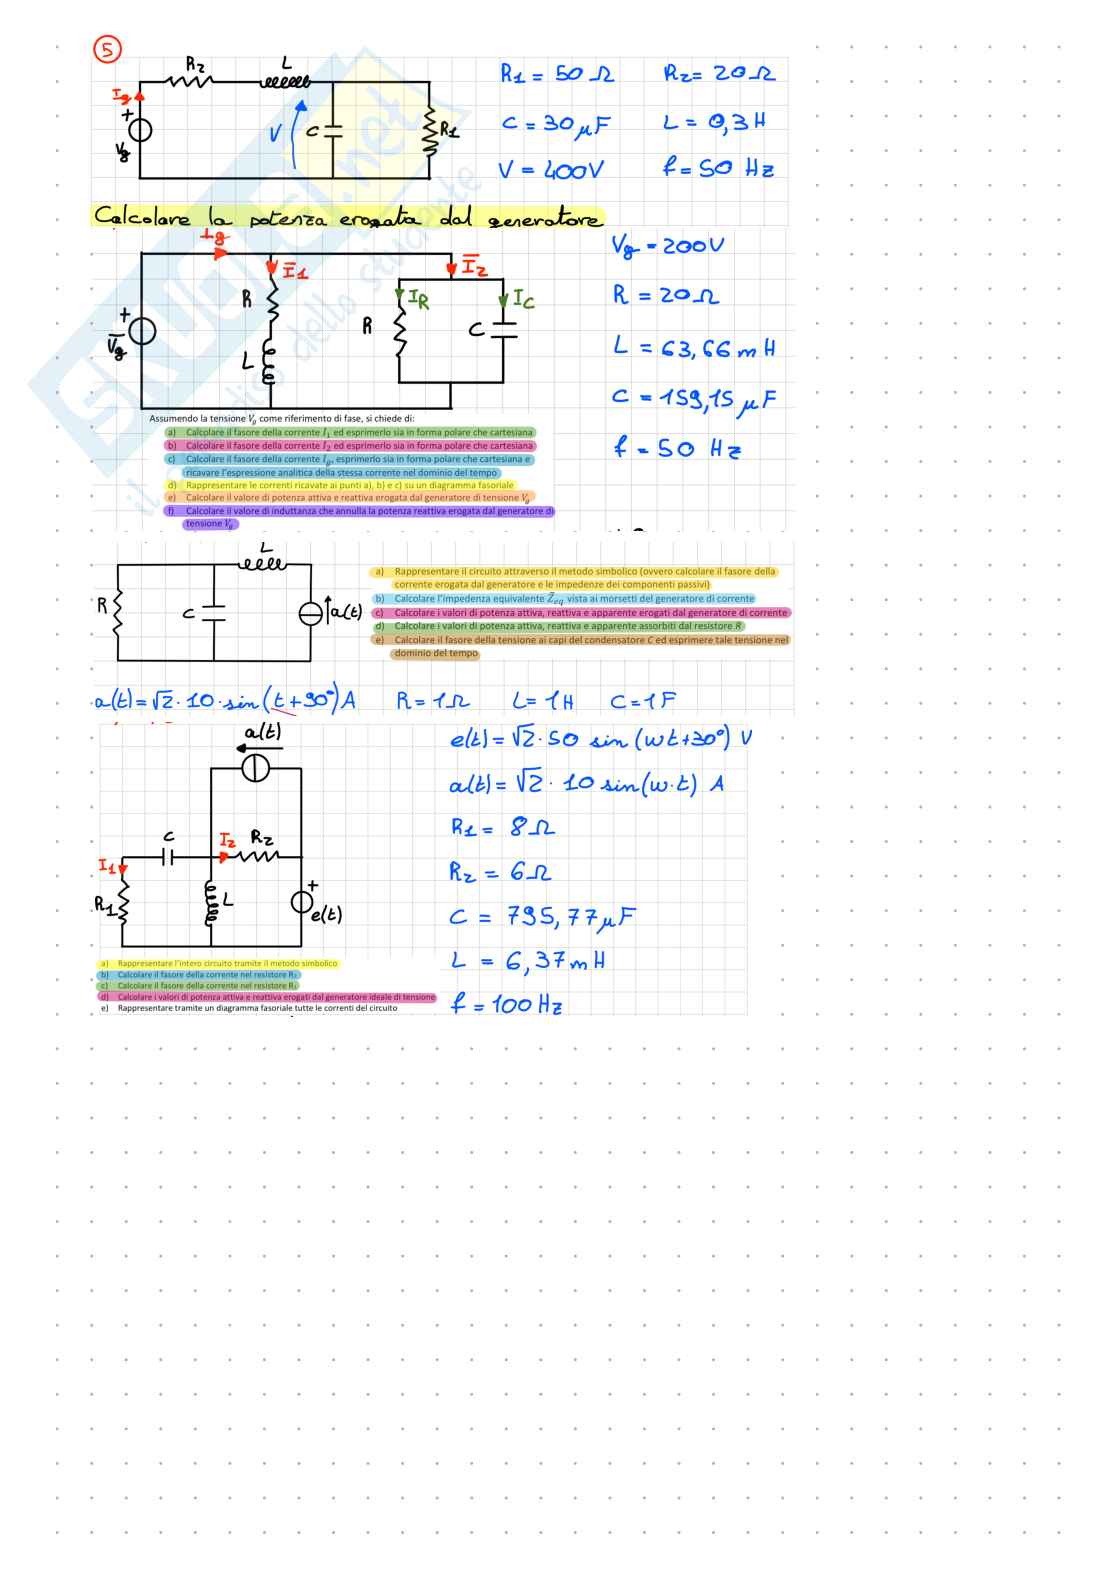 5
R2
L
Ig
+
Vg
V
C
R1
R1 = 50 Ω
R2 = 20 Ω
C = 30 μF
L = 0,3 H
V = 400V
f = 50 Hz
Calcolare la potenza erogata dal generatore
Ig
I1
I2
R
IR
IC
+
Vg
R
C
L
Vg = 200V
R = 20 Ω
L = 63,66 mH
C = 159,15 μF
f = 50 Hz
Assumendo la tensione Vg come riferimento di fase, si chiede di:
a) Calcolare il fasore della corrente I1 ed esprimerlo sia in forma polare che cartesiana
b) Calcolare il fasore della corrente I2 ed esprimerlo sia in forma polare che cartesiana
c) Calcolare il fasore della corrente Ig, esprimerlo sia in forma polare che cartesiana e
ricavare l'espressione analitica della stessa corrente nel dominio del tempo
d) Rappresentare le correnti ricavate ai punti a), b) e c) su un diagramma fasoriale
e) Calcolare il valore di potenza attiva e reattiva erogata dal generatore di tensione Vg
f) Calcolare il valore di induttanza che annulla la potenza reattiva erogata dal generatore di
tensione Vg
L
R
C
a(t)
a) Rappresentare il circuito attraverso il metodo simbolico (ovvero calcolare il fasore della
corrente erogata dal generatore e le impedenze dei componenti passivi)
b) Calcolare l'impedenza equivalente Zeq vista ai morsetti del generatore di corrente
c) Calcolare i valori di potenza attiva, reattiva e apparente erogati dal generatore di corrente
d) Calcolare i valori di potenza attiva, reattiva e apparente assorbiti dal resistore R
e) Calcolare il fasore della tensione ai capi del condensatore C ed esprimere tale tensione nel
dominio del tempo
a(t) = √2 · 10 · sin(t + 30°) A
R = 1 Ω
L = 1 H
C = 1 F
a(t)
C
I2
R2
I1
R1
L
+
e(t)
e(t) = √2 · 50 sin(ωt + 30°) V
a(t) = √2 · 10 sin(ω·t) A
R1 = 8 Ω
R2 = 6 Ω
C = 795,77 μF
L = 6,37 mH
f = 100 Hz
a) Rappresentare l'intero circuito tramite il metodo simbolico
b) Calcolare il fasore della corrente nel resistore R₁
c) Calcolare il fasore della corrente nel resistore R₂
d) Calcolare i valori di potenza attiva e reattiva erogati dal generatore ideale di tensione
e) Rappresentare tramite un diagramma fasoriale tutte le correnti del circuito
SKUOLA.net
dello studente